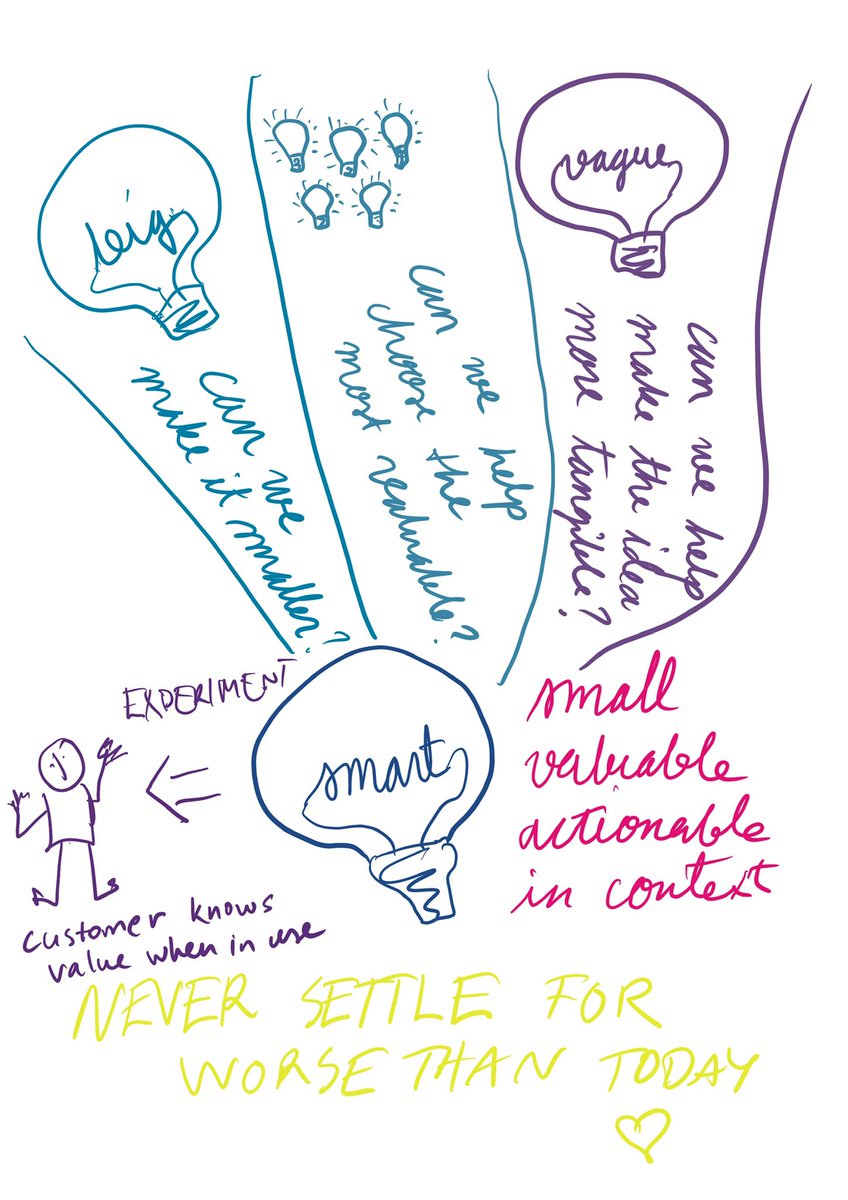 big
can we
make it smaller?
can we help
choose the
most valuable?
vague
can we help
make the idea
more tangible?
EXPERIMENT
smart
small
valuable
actionable
in context
customer knows
value when in use
NEVER SETTLE FOR
WORSE THAN TODAY